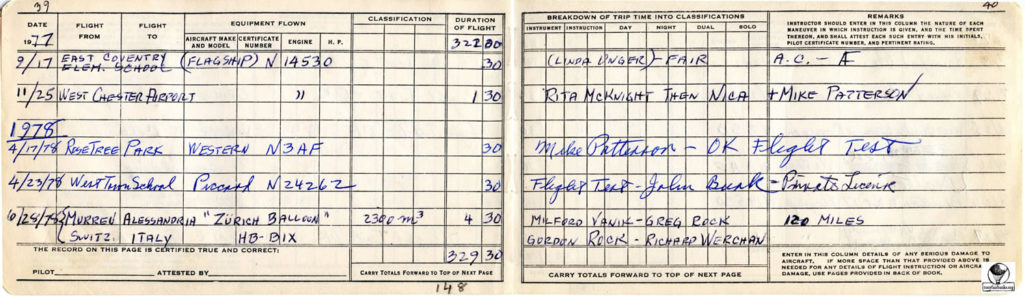 39
40
DATE
1977
FLIGHT FROM
FLIGHT TO
EQUIPMENT FLOWN
AIRCRAFT MAKE AND MODEL
CERTIFICATE NUMBER
ENGINE
H. P.
CLASSIFICATION
DURATION OF FLIGHT
322 00
BREAKDOWN OF TRIP TIME INTO CLASSIFICATIONS
INSTRUMENT
INSTRUCTION
DAY
NIGHT
DUAL
SOLO
REMARKS
INSTRUCTOR SHOULD ENTER IN THIS COLUMN THE NATURE OF EACH
MANEUVER IN WHICH INSTRUCTION IS GIVEN, AND THE TIME SPENT
THEREON, AND SHALL ATTEST EACH SUCH ENTRY WITH HIS INITIALS,
PILOT CERTIFICATE NUMBER, AND PERTINENT RATING.
9/17 EAST COVENTRY ELEM. SCHOOL (FLAGSHIP) N 14530 30 (LINDA UNGER) - FAIR A.C. - F
11/25 WEST CHESTER AIRPORT " 1 30 RITA MCKNIGHT THEN NICA + MIKE PATTERSON
1978
4/17/78 ROSE TREE PARK WESTERN N3AF 30 Mike Patterson - OK Flight Test
4/23/78 West Town School Piccard N24262 30 Flight Test - John Bunk - Private License
6/28/78 { MURREN ALESSANDRIA "ZÜRICH BALLOON" 2300 m³ 4 30 MILFORD VANIK - GREG ROCK 120 MILES
SWITZ. ITALY HB-BIX GORDON ROCK - RICHARD WERCHAN
THE RECORD ON THIS PAGE IS CERTIFIED TRUE AND CORRECT:
329 30
PILOT ATTESTED BY
CARRY TOTALS FORWARD TO TOP OF NEXT PAGE
148
CARRY TOTALS FORWARD TO TOP OF NEXT PAGE
ENTER IN THIS COLUMN DETAILS OF ANY SERIOUS DAMAGE TO
AIRCRAFT. IF MORE SPACE THAN THAT PROVIDED ABOVE IS
NEEDED FOR ANY DETAILS OF FLIGHT INSTRUCTION OR AIRCRAFT
DAMAGE, USE PAGES PROVIDED IN BACK OF BOOK.